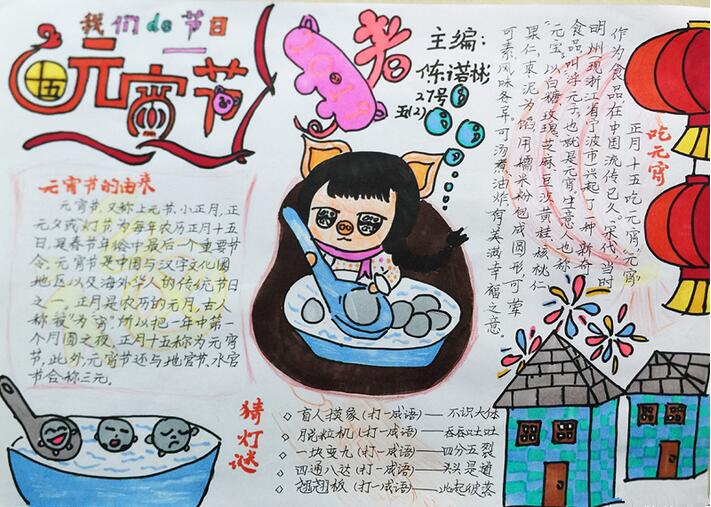 我们de节日
元宵节
十五
猪
2019
主编:
27号
五(2)
元宵节的由来
元宵节,又称上元节、小正月、正
元夕或灯节为每年农历正月十五
日,是春节年俗中最后一个重要节
令。元宵节是中国与汉字文化圈
地区以及海外华人的传统节日
之一。正月是农历的元月,古人
称“夜”为“宵”,所以把一年中第一
个月圆之夜,正月十五称为元宵
节,此外,元宵节还与地官节、水官
节合称三元。
吃元宵
正月十五吃元宵,“元宵”
作为食品,在中国流传已久。宋代,当时
明州现浙江省宁波市兴起了一种新奇
食品叫浮元子,也就是元宵,生意人也称
“元宝。以白糖、玫瑰、芝麻、豆沙、黄桂、核桃仁
果仁、枣泥为馅用糯米粉包成圆形,可荤
可素,风味各异。可汤煮、油炸有美满幸福之意
猜灯谜
盲人摸象(打一成语)——不识大体
脱粒机(打一成语)——吞吞吐吐
一块变九(打一成语)——四分五裂
四通八达(打一成语)——头头是道
翘翘板(打一成语)——此起彼落